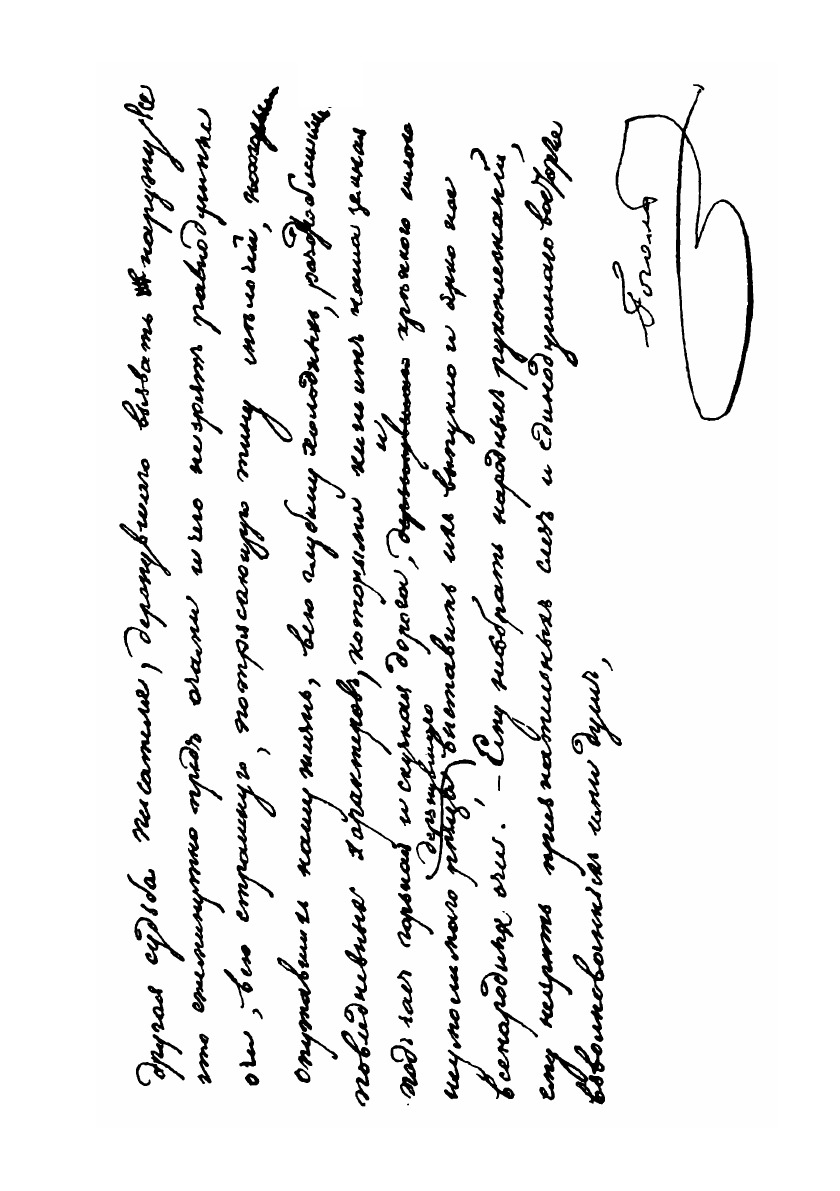 другая судьба писателя, дерзнувшаго вызвать наружу все
что ежеминутно предъ очами и чего незрятъ равнодушные
очи, всю страшную, потрясающую тину мелочей,
опутавшихъ нашу жизнь, всю глубину холодныхъ, раздробленныхъ,
повседневныхъ характеровъ, которыми кишитъ наша земная
подчасъ горькая и скучная дорога, и крѣпкою силою
дерзнувшаго
неумолимаго рѣзца выставить ихъ выпукло и ярко на
всенародныя очи. – Ему несобрать народныхъ рукоплесканій,
ему незрѣть признательныхъ слезъ и единодушнаго восторга
взволнованныхъ имъ душъ,
Гоголь